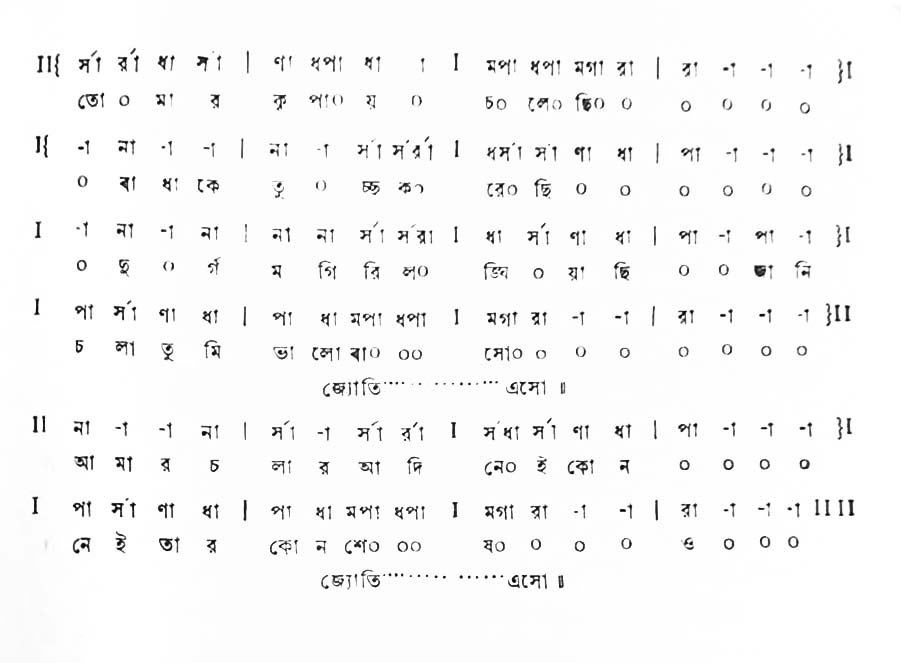 II{ র্সা র্রা ধা র্সা | ণা ধপা ধা া I মপা ধপা মগা রা | রা -া -া -া }I
তো ০ মা র কৃ পা০ য় ০ চ০ লে০ ছি০ ০ ০ ০ ০ ০
I{ -া না -া -া | না -া র্সা র্সর্রা I ধর্সা র্সা ণা ধা | পা -া -া -া }I
০ বা ধা কে তু ০ চ্ছ ক০ রে০ ছি ০ ০ ০ ০ ০ ০
I -া না -া না | না না র্সা র্সরা I ধা র্সা ণা ধা | পা -া পা -া }I
০ দু ০ র্গ ম গি রি ল০ ঙ্ঘি ০ য়া ছি ০ ০ জা নি
I পা র্সা ণা ধা | পা ধা মপা ধপা I মগা রা -া -া | রা -া -া -া }II
চ লা তু মি ভা লো বা০ ০০ সো০ ০ ০ ০ ০ ০ ০ ০
জ্যোতি············এসো ॥
II না -া -া না | র্সা -া র্সা র্রা I র্সধা র্সা ণা ধা | পা -া -া -া }I
আ মা র চ লা র আ দি নে০ ই কো ন ০ ০ ০ ০
I পা র্সা ণা ধা | পা ধা মপা ধপা I মগা রা -া -া | রা -া -া -া II II
নে ই তা র কো ন শে০ ০০ ষ০ ০ ০ ০ ও ০ ০ ০
জ্যোতি············এসো ॥